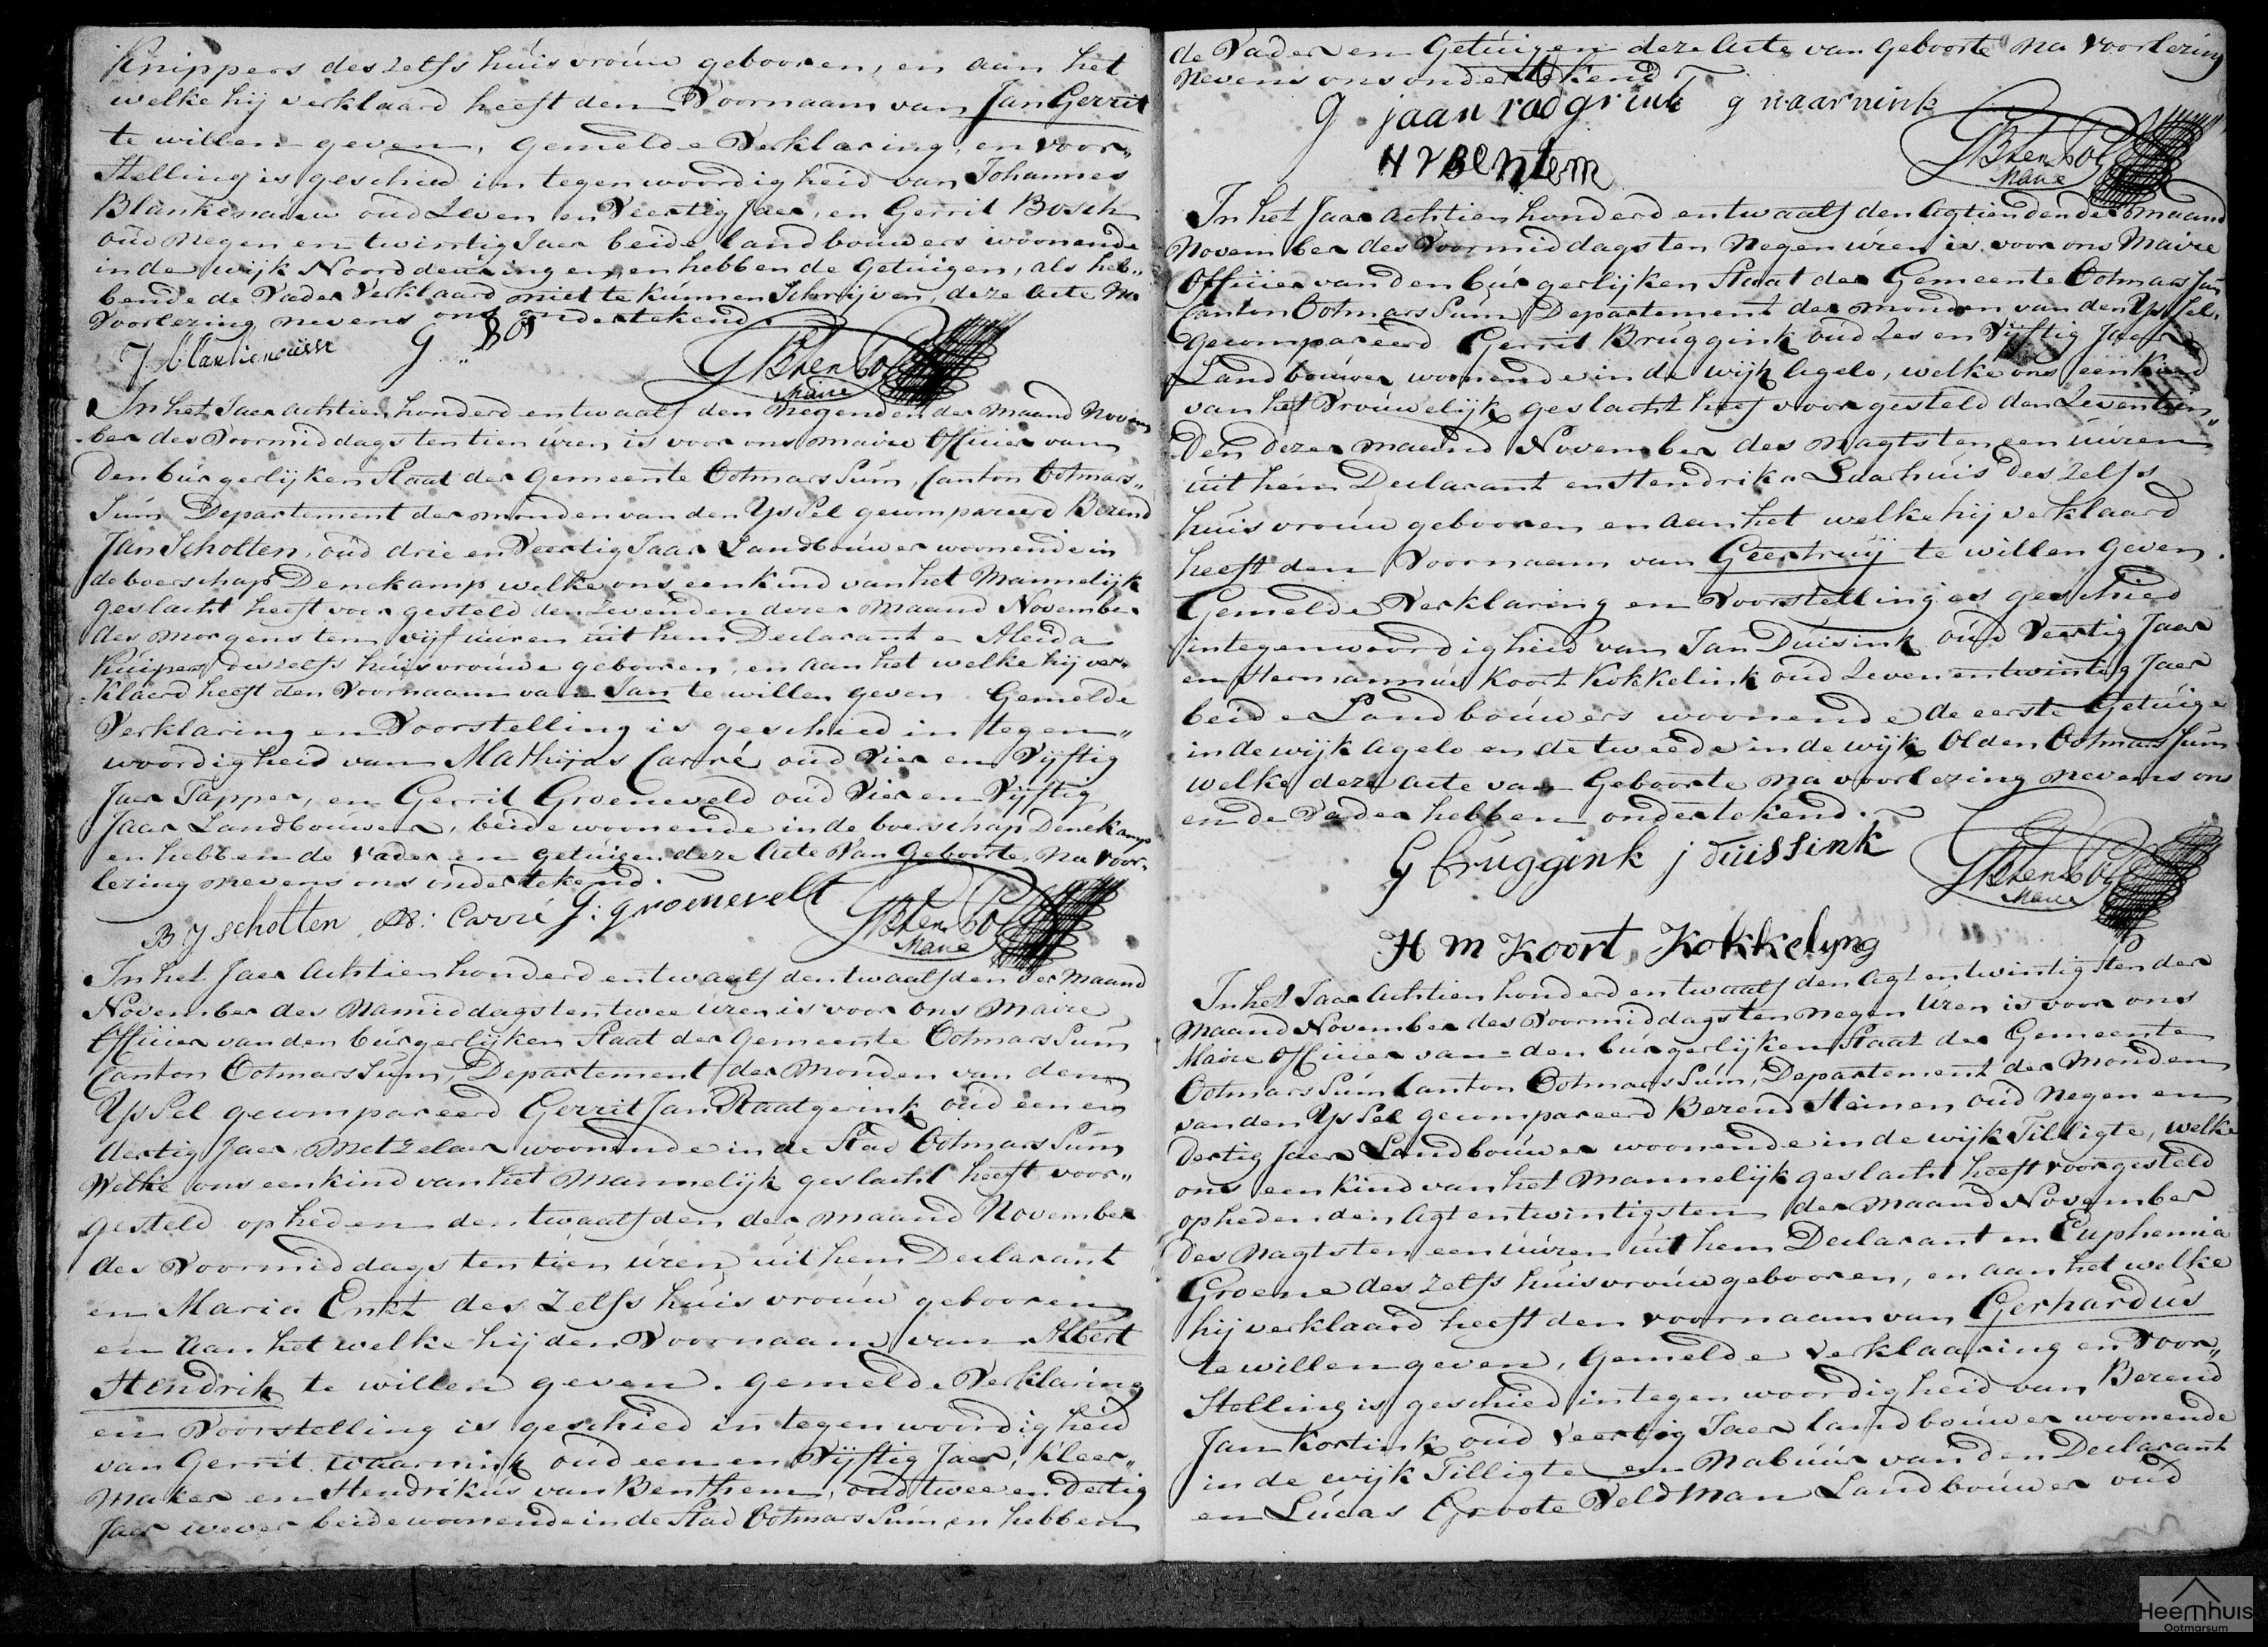 Knippers des zelfs húisvroúw gebooren, en aan het
welke hij verklaard heeft den Voornaam van Jan Gerrit
te willen geven, gemelde Verklaring, en voor„
Stelling is geschied in tegenwoordigheid van Johannes
Blankenauw oud Zeven en Veertig Jaer, en Gerrit Bosch
oud negen en twintig Jaer beide landboúwers woonende
in de wijk Noorddeúringen, en hebben de Getúigen, als heb„
bende de Vader Verklaard niet te kúnnen Schrijven, deze Acte Na
Voorlezing nevens ons ondertekend
G Bos
GB ten Pol
Maire
In het Jaer Achtien honderd en twaalf den Negenden der Maand Novem
ber des Voormiddags ten tien úren is voor ons maire Officier van
den búrgerlijken Staat der Gemeente OotmarsSúm, Canton Ootmars„
Súm Departement der monden van den YsSel gecompareerd Berend
Jan Scholten, oúd drie en Veertig Jaar Landboúwer woonende in
de boerschap Denekamp welke ons een kind van het Mannelijk
geslacht heeft voorgesteld den Zevenden dezer Maand November
des morgens ten vijf úuren úit hem Declarant en Aleida
Kúipers des zelfs húisvroúwe gebooren, en aan het welke hij ver„
klaard heeft den Voornaam van Jan te willen geven Gemelde
Verklaring en Voorstelling is geschied in tegen„
woordigheid van Mathijas Carré oúd Vier en Vijftig
Jaer Tapper, en Gerrit Groeneveld oúd Vier en Vijftig
Jaar Landboúwer, beide woonende in de boerschap Denekamp
en hebben de Vader en getúigen deze Acte van Geboorte, na voor„
lezing nevens ons ondertekend.
B J scholten M: Carré G: groenevelt
GB ten Pol
Maire
In het Jaer Achtien honderd en twaalf den twaalfden der Maand
November des Namiddags ten twee úren is voor ons Maire
Officier van den búrgerlijken Staat der Gemeente OotmarsSúm
Canton OotmarsSúm, Departement der Monden van den
YsSel gecompareerd Gerrit Jan Raatgerink oúd een en
dertig Jaer, Metzelaar woonende in de Stad OotmarsSúm
Welke ons een kind van het Mannelijk geslacht heeft voor„
gesteld op heden den twaalfden der maand November
des Voormiddags ten tien úren úit hem Declarant
en Maria Enkt des zelfs húisvroúw gebooren
en aan het welke hij den Voornaam van Albert
Hendrik te willen geven. gemelde Verklaring
en Voorstelling is geschied in tegenwoordigheid
van Gerrit Waarnink oúd een en Vijftig Jaer, kleer„
maker en Hendrikus van Benthem, oúd twee en dertig
Jaer wever beide woonende in de Stad OotmarsSúm, en hebben
de Vader en Getúigen deze Acte van Geboorte Na Voorlezing
Nevens ons ondertekend
G jaan radgrink g waarnink
H V Bentem
GB ten Pol
Maire
In het Jaar Achtien honderd en twaalf den Agtienden der Maand
November des Voormiddags ten Negen úren is voor ons Maire
Officier van den búrgerlijken Staat der Gemeente OotmarsSúm
Canton OotmarsSúm Departement der monden van den YsSel„
gecompareerd Gerrit Brúggink oúd Zes en Vijftig Jaer
Landboúwer woonende in de wijk Agelo, welke ons een kind
van het Vroúwelijk geslacht heef voorgesteld den Zeventien„
den dezer maand November des Nagts ten een úúren
úit hem Declarant en Hendrika Laarhúis des zelfs
húisvroúw gebooren en aan het welke hij verklaard
heeft den Voornaam van Geertruij te willen Geven.
Gemelde Verklaring en Voorstelling is geschied
in tegenwoordigheid van Jan Dúisink oúd Veertig Jaar
en Hermannús Koort Kokkelink oúd Zeven en twintig Jaer
beide Landboúwers woonende de eerste Getúige
in de wijk Agelo en de tweede in de wijk Olden OotmarsSúm
welke deze Acte van Geboorte na voorlezing nevens ons
en de Vader hebben ondertekend.
G bruggink j duissink
GB ten Pol
Maire
H m Koort Kokkelyng
In het Jaar Achtien honderd en twaalf den Agt en twintigsten der
Maand November des Voormiddags ten negen Úren is voor ons
Maire Officier van den búrgerlijken Staat der Gemeente
OotmarsSúm Canton OotmarsSúm, Departement der Monden
van den YsSel gecompareerd Berend Heinen oúd Negen en
Dertig Jaer Landboúwer woonende in de wijk Tilligte, welke
ons een kind van het Mannelijk geslacht heeft voorgesteld
op heden den Agt en twintigsten der maand November
des Nagts ten een úúren úit hem Declarant en Euphemia
Groene des zelfs húisvroúw gebooren, en aan het welke
hij verklaard heeft den voornaam van Gerhardús
te willen geven, Gemelde Verklaaring en Voor„
Stelling is geschied in tegenwoordigheid van Berend
Jan Kortink oúd Veertig Jaer landboúwer woonende
in de wijk Tilligte en Nabúúr van den Declarant
en Lúcas Groote Veldman Landboúwer oúd
Heemhuis
Ootmarsum